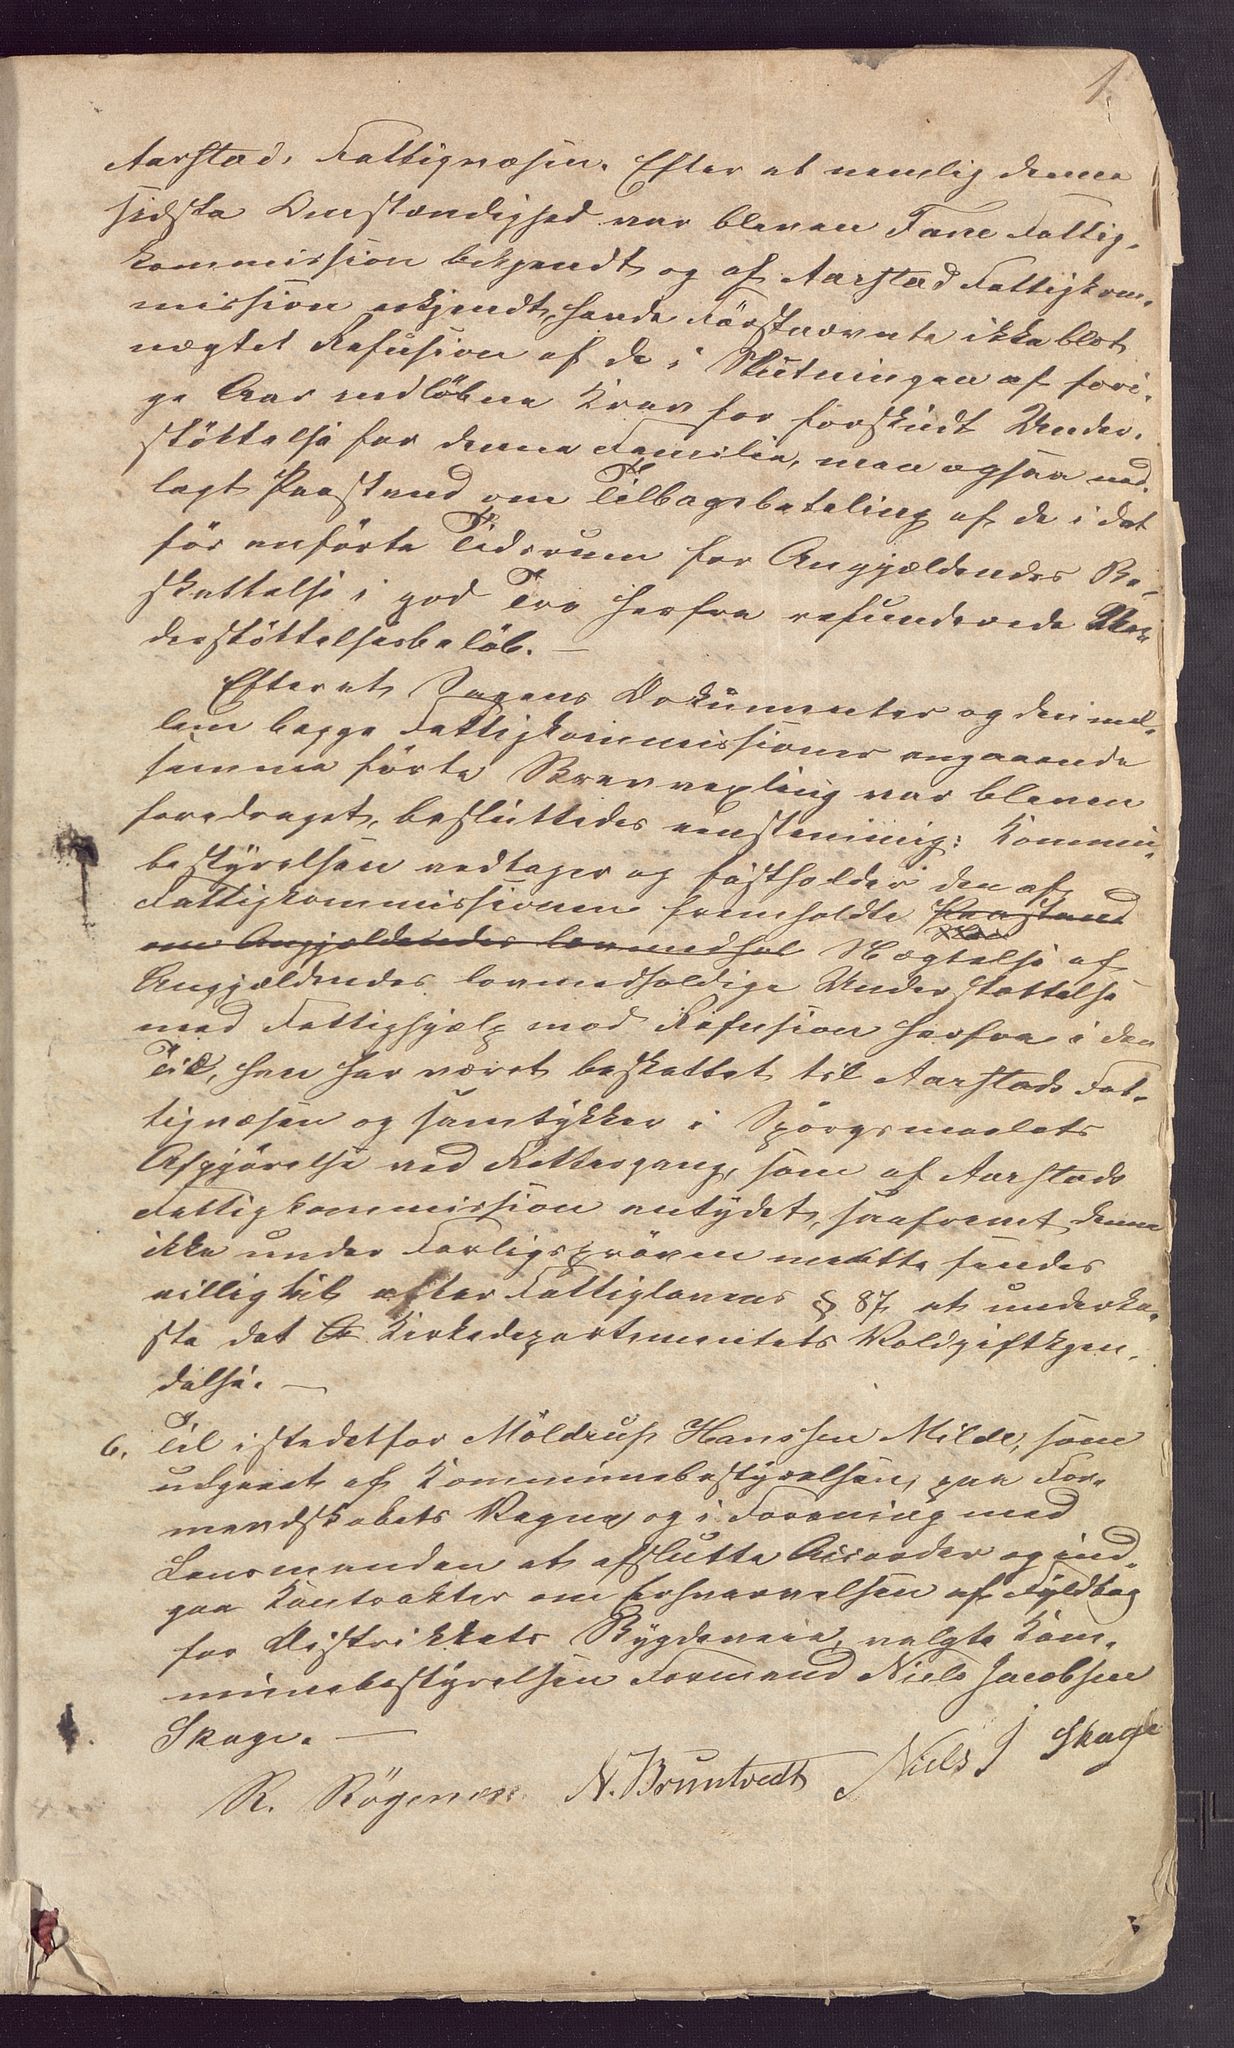 1.
Aarstads Fattigvæsen. Efter at nemlig denne
sidste Omstændighed var bleven Fane Fattig-
kommission bekjendt og af Aarstad Fattigkom-
mission erkjendt, havde Førstnævnte ikke blot
nægtet Refusion af de i Slutningen af fori-
ge Aar indløbne Krav for forskudt Under-
støttelse for denne Familie, men ogsaa ned-
lagt Paastand om Tilbagebetaling af de i det
før anførte Tidsrum for Angjældendes Be-
skattelse i god Tro herfra refunderede Un-
derstøttelsesbeløb. —
Efterat Sagens Dokumenter og den mel-
lem begge Fattigkommissioner angaaende
samme førte Brevvexling var bleven
foredraget, besluttedes eenstemmig: Kommu-
bestyrelsen vedtager og fastholder den af
Fattigkommissionen fremholdte Paastand
om Angjældendes lovmedhol Nægtelse af
Angjældendes lovmedholdige Understøttelse
med Fattighjælp mod Refusion herfra i den
Tid, han har været beskattet til Aarstads Fat-
tigvæsen og samtykker i Spørgsmaalets
Afgjørelse ved Rettergang, som af Aarstads
Fattigkommission antydet, saafremt denne
ikke under Forligsprøven maatte findes
villig til efter Fattiglovens § 87 at underka-
ste det Kirkedepartementets Voldgiftkjen-
delse. —
6. Til istedetfor Möldrup Hanssen Milde, som
udgaaet af Kommunebestyrelsen, paa For-
mandskabets Vegne og i Forening med
Lensmanden at afslutte Accorder og ind-
gaa Kontrakter om Erhvervelsen af Fyldtag
for Distriktets Bygdeveie, valgte Kom-
munebestyrelsen Formand Niels Jacobsen
Skage. —
R. Rögenes N. Bruntvedt Niels J Skage